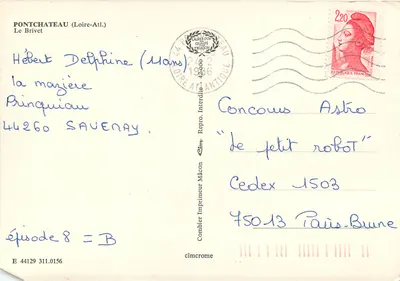 PONTCHATEAU (Loire-Atl.)
Le Brivet
Hébert Delphine (11ans)
la mazière
Prinquiau
44260 SAVENAY
épisode 8 = B
E 44129 311.0156
Combier Imprimeur Mâcon
Repro. Interdite
cimcrome
LOIRE ATLANTIQUE
1986
2,20
Concours Astro
"Le petit robot"
Cedex 1503
75013 Paris-Brune